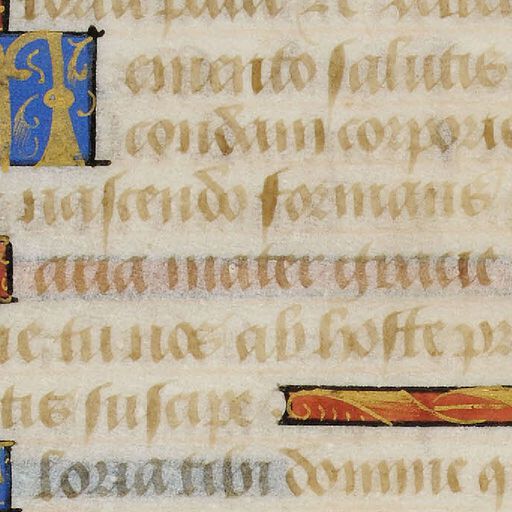 emento salutis
condam corporis
nascendo formam
aria mater gracie
tu nos ab hoste
tis suscipe
loria tibi domine q